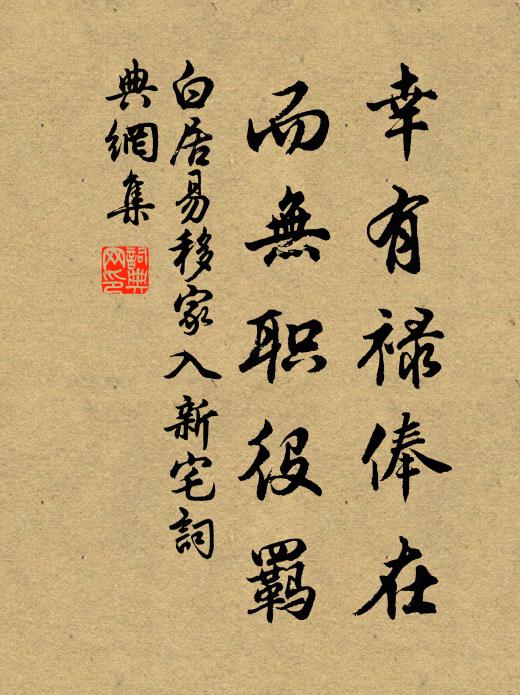 幸有禄俸在
而無职役羁
白居易移家入新宅詞
典網集
詞典
网印